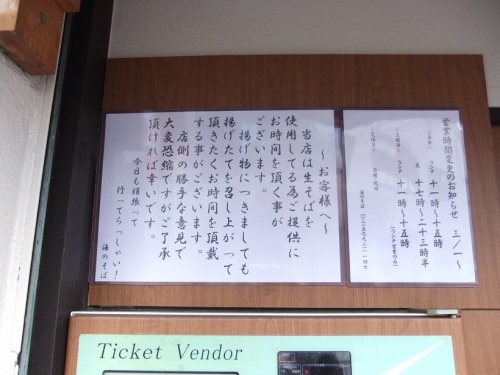 営業時間変更のお知らせ 三/一〜
ランチ 十一時〜十五時
夜 十七時〜二十三時半
ランチ 十一時〜十五時
(ランチ営業のみ)
〜お客様へ〜
当店は生そばを
使用してる為ご提供に
お時間を頂く事が
ございます。
揚げ物につきましても
揚げたてを召し上がって
頂きたくお時間を頂戴
する事がございます。
店側の勝手な意見で
大変恐縮ですがご了承
頂ければ幸いです。
今日も頑張って
行ってらっしゃい!
海のそば
Ticket Vendor